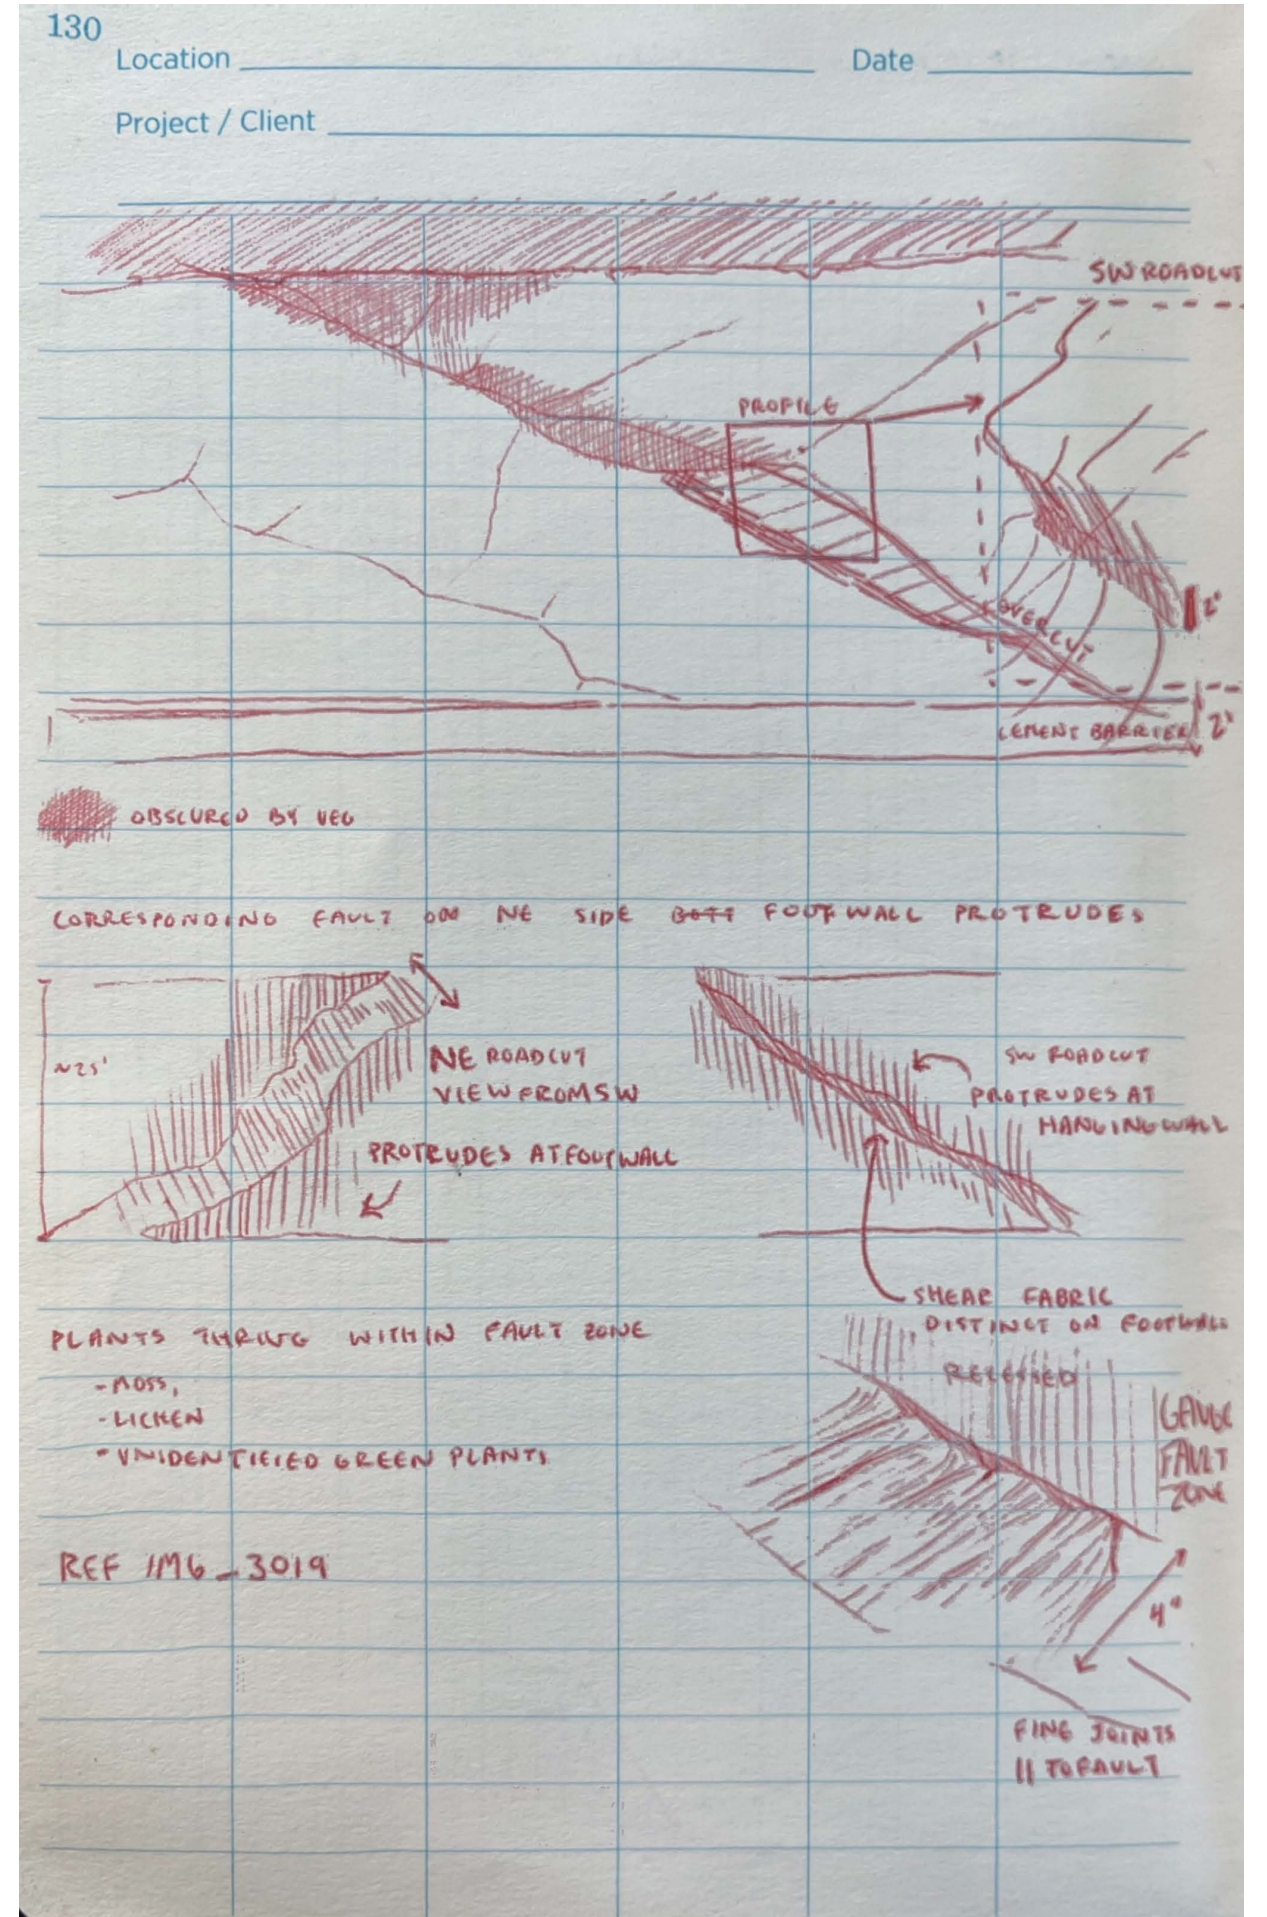 130
Location
Date
Project / Client
SW ROADCUT
PROFILE
OVERCUT
2'
CEMENT BARRIER
2'
OBSCURED BY VEG
CORRESPONDING FAULT ON NE SIDE BOTT FOOTWALL PROTRUDES
~25'
NE ROADCUT
VIEW FROM SW
PROTRUDES AT FOOTWALL
SW ROADCUT
PROTRUDES AT
HANGINGWALL
SHEAR FABRIC
DISTINCT ON FOOTWALL
PLANTS THRIVE WITHIN FAULT ZONE
- MOSS,
- LICHEN
- UNIDENTIFIED GREEN PLANTS
RECESSED
GAUGE
FAULT
ZONE
REF IMG_3019
4"
FINE JOINTS
|| TO FAULT